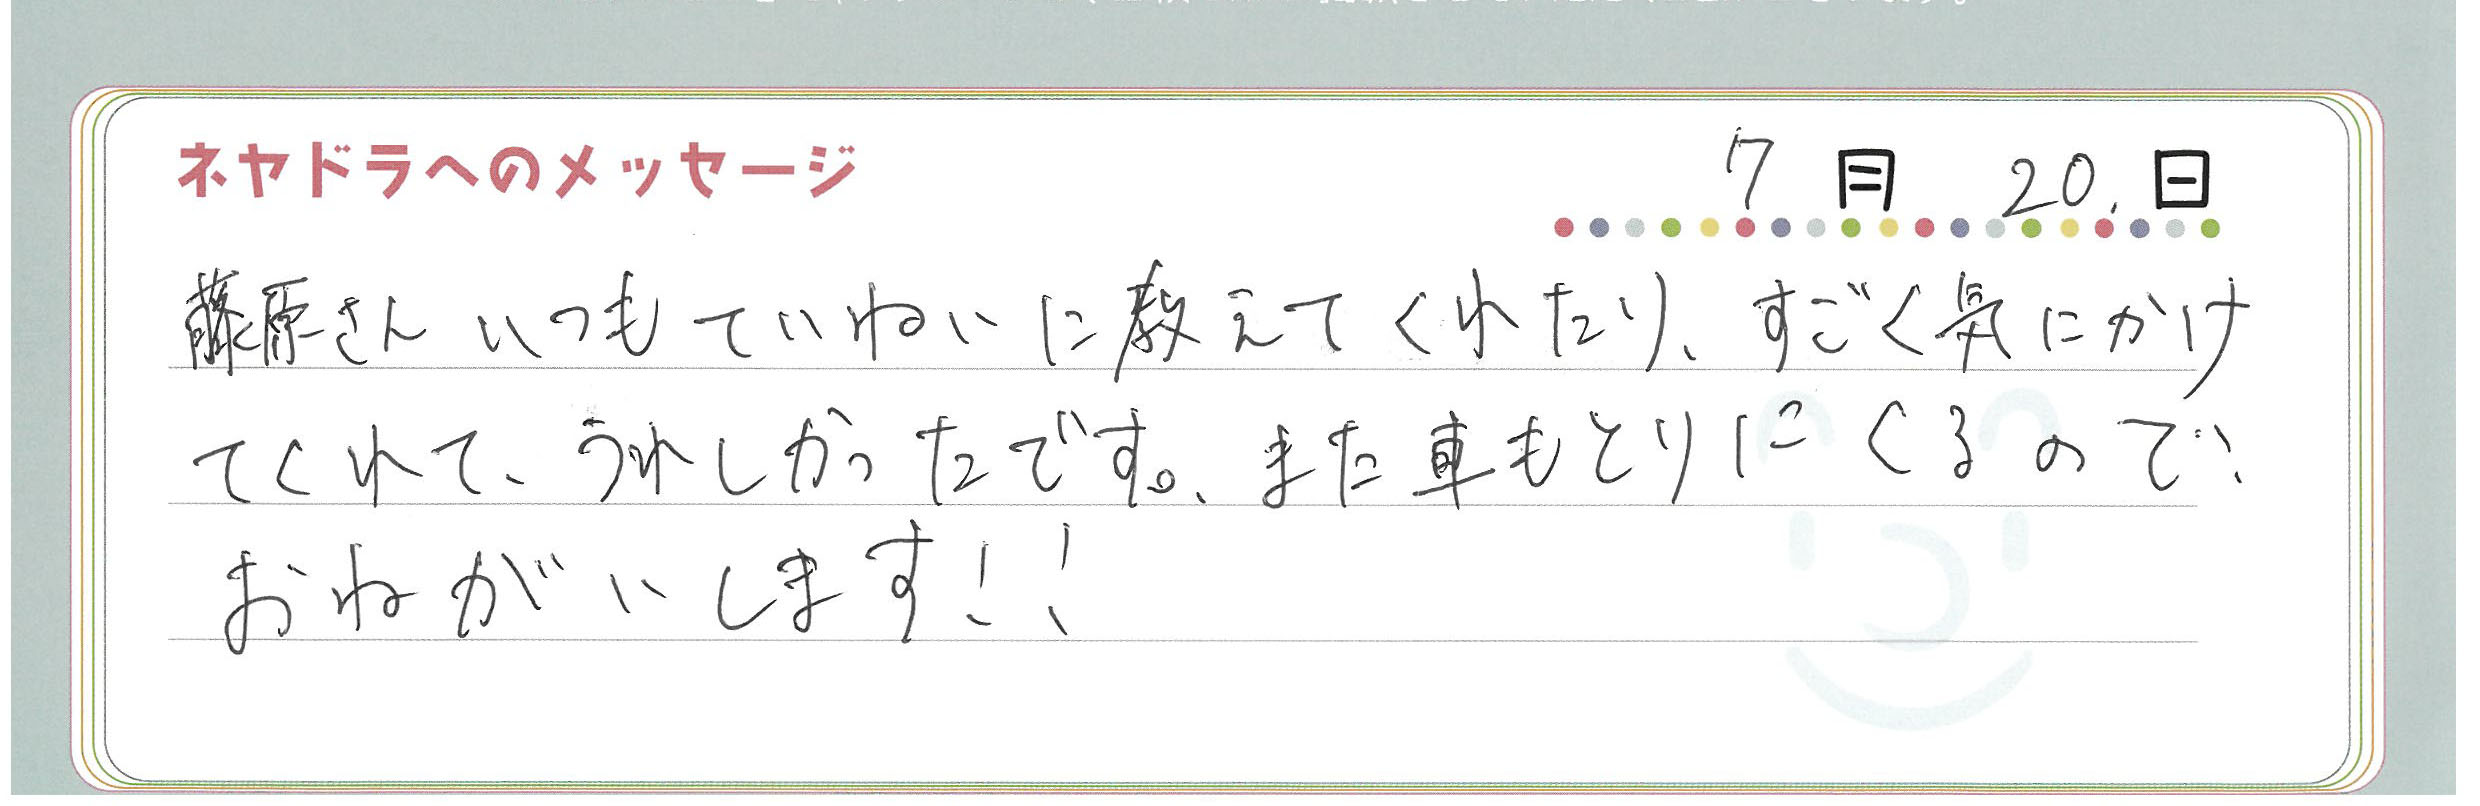 ネヤドラへのメッセージ
7月 20.日
藤原さん いつもていねいに教えてくれたり、すごく気にかけ
てくれて、うれしかったです。、また車もとりにくるので、
おねがいします!!